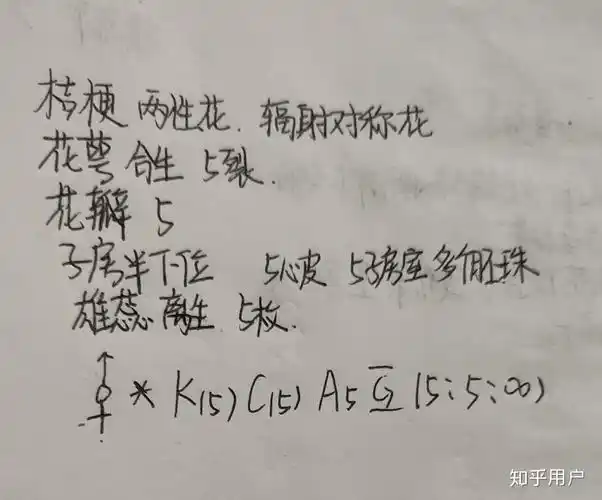 桔梗 两性花. 辐射对称花
花萼 合生 5裂.
花瓣 5
子房半下位 5心皮 5子房室多个胚珠
雄蕊离生 5枚.
⚥ * K(5) C(5) A5 G̲̅ (5:5:∞)
知乎用户